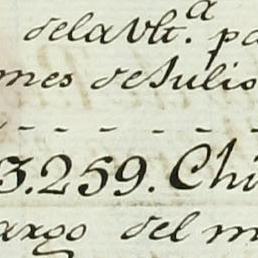 de la Vlt.ª pa
mes de Julio
- - - - - -
3.259. Chi
argo del m